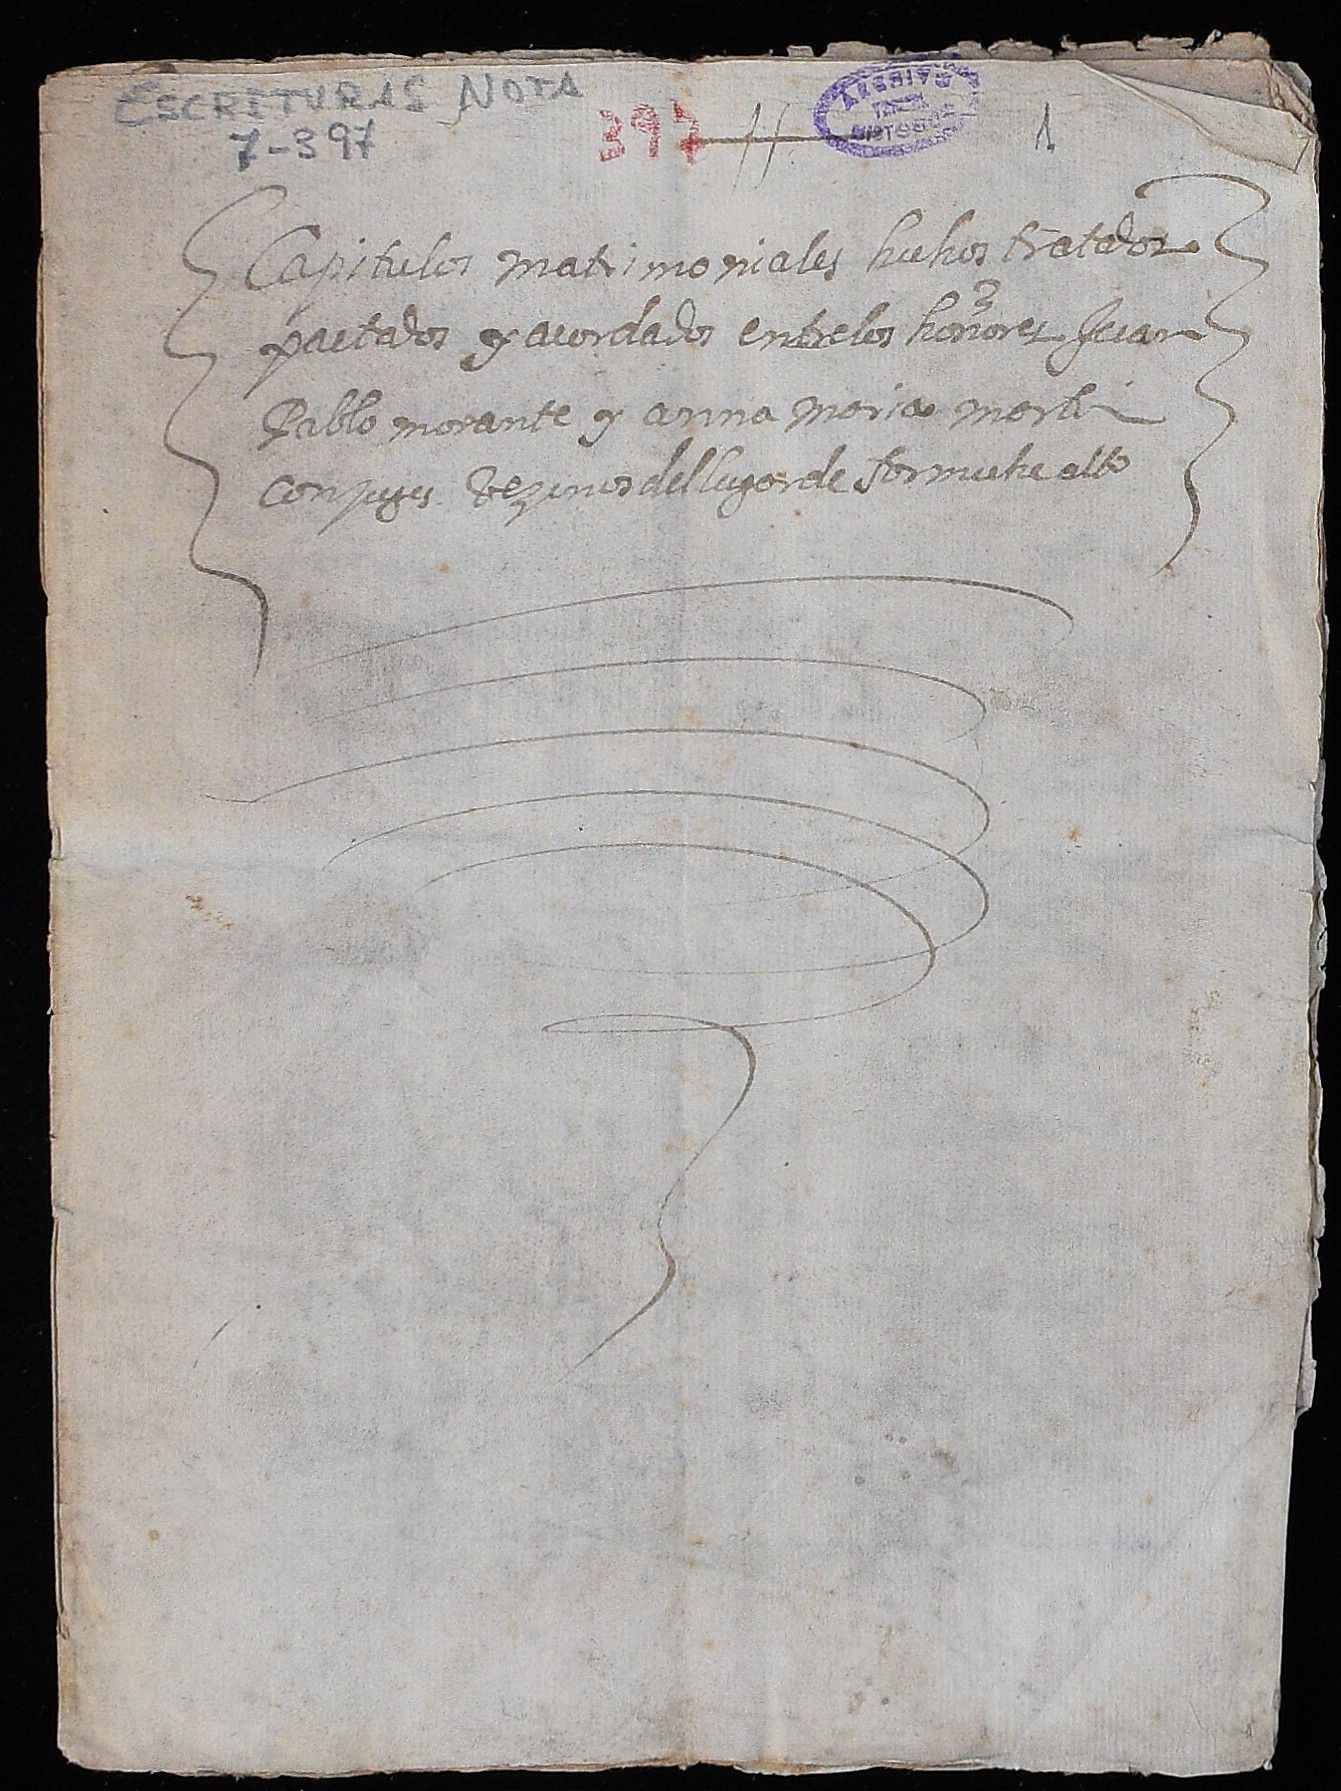 ESCRITURAS NOTA
7-397
397
1
Capitulos matrimoniales hechos tratados
pactados y acordados entre los honores Juan
Pablo morante y anna maria marti
conjuges vezinos del lugar de formiche alto